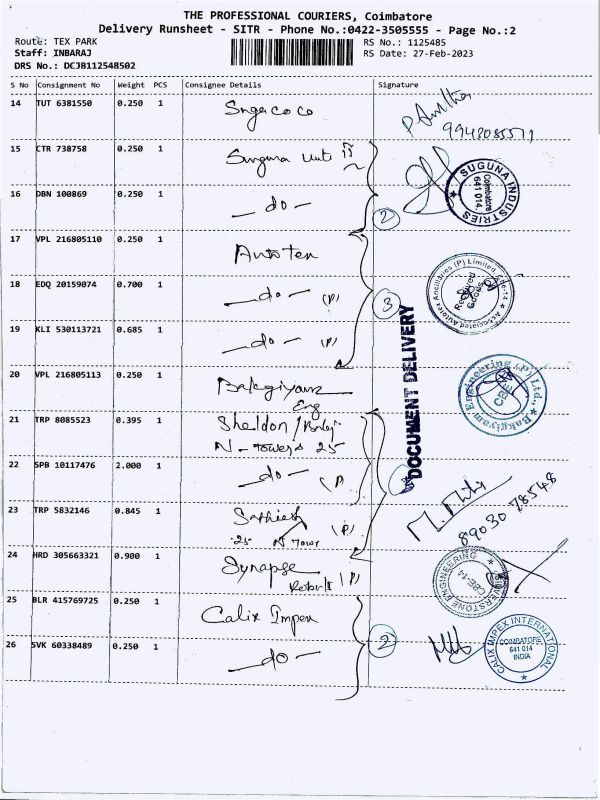 THE PROFESSIONAL COURIERS, Coimbatore
Delivery Runsheet - SITR - Phone No.:0422-3505555 - Page No.:2
Route: TEX PARK
Staff: INBARAJ
DRS No.: DCJB112548502
RS No.: 1125485
RS Date: 27-Feb-2023
S No Consignment No Weight PCS Consignee Details Signature
14 TUT 6381550 0.250 1
15 CTR 738758 0.250 1 Suguna unit II
16 DBN 100869 0.250 1 — do —
17 VPL 216805110 0.250 1 Autotex
18 EDQ 20159074 0.700 1 — do — (P)
19 KLI 530113721 0.685 1 — do — (P)
20 VPL 216805113 0.250 1 Bakgiyam Eng
21 TRP 8085523 0.395 1 Sheldon /
N - Tower 25
22 SPB 10117476 2.000 1 — do — (P
23 TRP 5832146 0.845 1 Sathish (P)
25 N Tower
24 HRD 305663321 0.900 1 Synapse (P)
25 BLR 415769725 0.250 1 Calix Impex
26 SVK 60338489 0.250 1 — do —
2
3
2
SUGUNA INDUSTRIES
Coimbatore
641 014.
Associated Autotex Ancillaries (P) Limited, Cbe-14
Received
Goods
DOCUMENT DELIVERY
Bakgiyam Engineering (P) Ltd.,
CBE
89030 78548
ENGINEERING
CBE-14
CALIX IMPEX INTERNATIONAL
COIMBATORE
641 014
INDIA